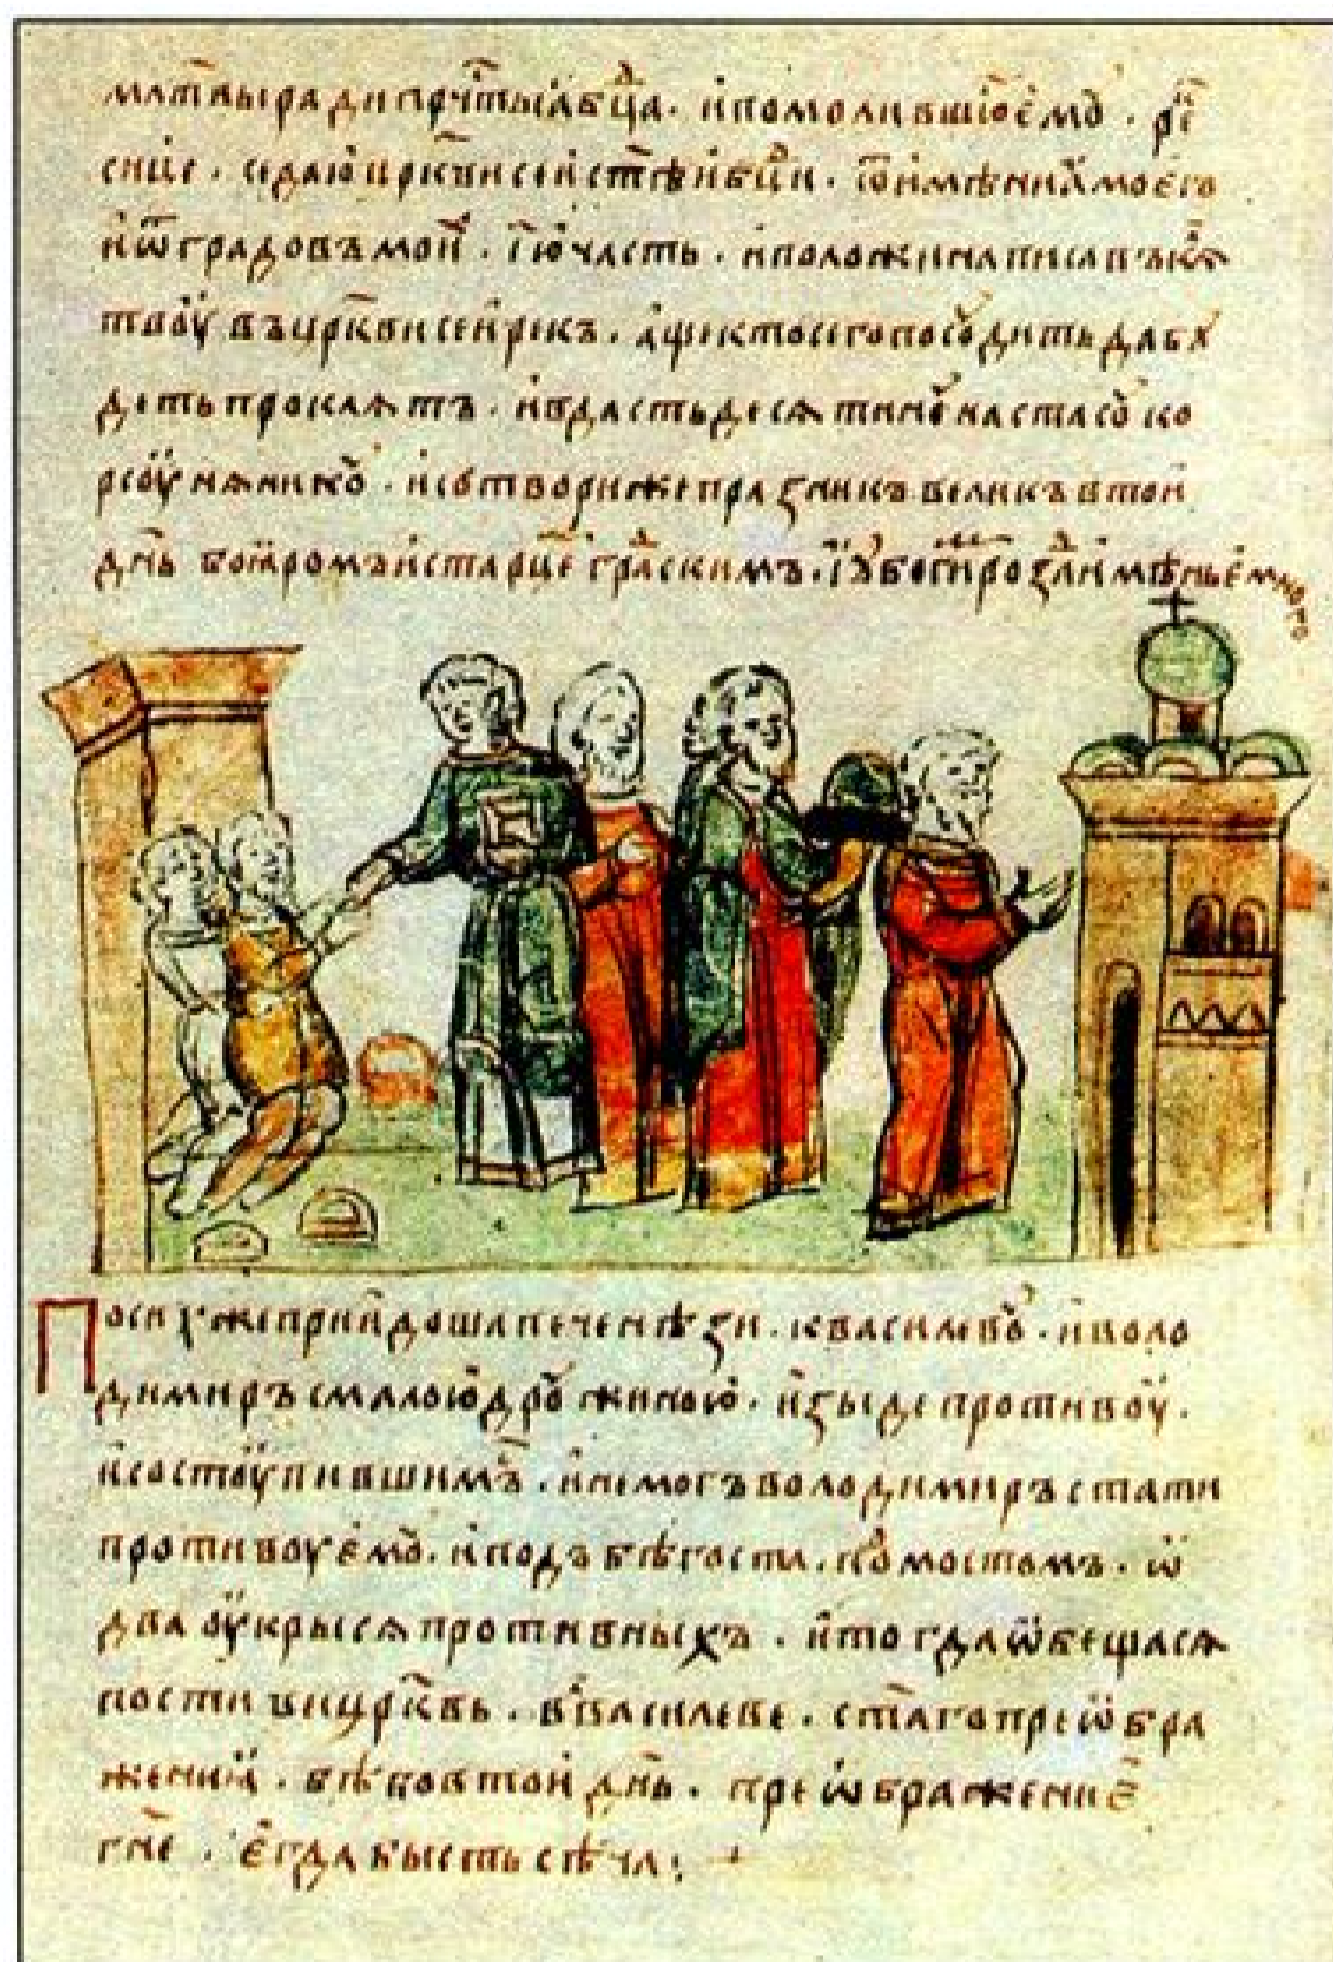 млт҃вы ради прч҃тыꙗ бц҃а. и помолившюсѧ емꙋ. рє҃
сице. се даю цр҃кви сеи ст҃ѣи бц҃и. ѿ имѣниꙗ моего
и ѿ градовъ мои. ї҃ю часть. и положи написавъ клѧ
твоу въ цр҃кви сеи рекъ. аще кто сего посоудить да бꙋ
деть проклѧтъ. и вдасть десѧтинꙋ настасꙋ ко
рсоунѧнинꙋ. и сотвори же празникъ великъ в тои
дн҃ь боꙗромъ и старце градскимъ. и ꙋбогим розда имѣнье много
По сих же приидоша печенѣзи. к василевꙋ. и воло
димиръ с малою дрꙋжиною. изыде противоу.
и состоупившимъ. и не могъ володимиръ стати
противоу емꙋ. и подъбѣг ста. под мостомъ. ѡ
два оукрысѧ противныхъ. и тогда ѡбещасѧ
постити црк҃вь. в василеве. ст҃аго преѡбра
жениꙗ. бѣ бо в тои дн҃ь. преѡбражение
гн҃е. егда бысть сѣча.